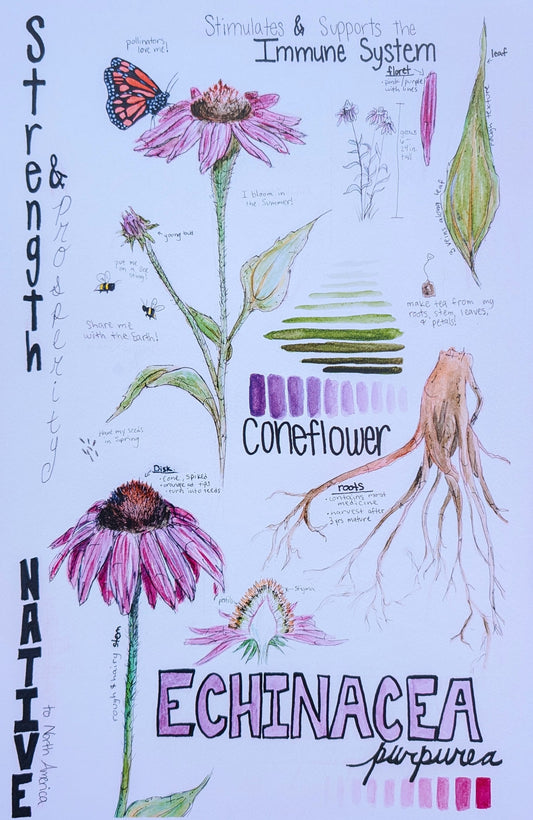 Strength
&
Prosperity
pollinators
love me!
Stimulates & Supports the
Immune System
floret
• pink/purple
with lines
leaf
grows
tall
I bloom in
the Summer!
young bud
put me
on a bee
sting!
Share me
with the Earth!
make tea from my
roots, stem, leaves,
& petals!
Plant my seeds
in Spring
Coneflower
Disk
• cone, spiked
• orange at tips
• turn into seeds
roots
• contains most
medicine
• harvest after
3 yrs mature
petals
stigma
rough & hairy stem
NATIVE
to North America
ECHINACEA
purpurea